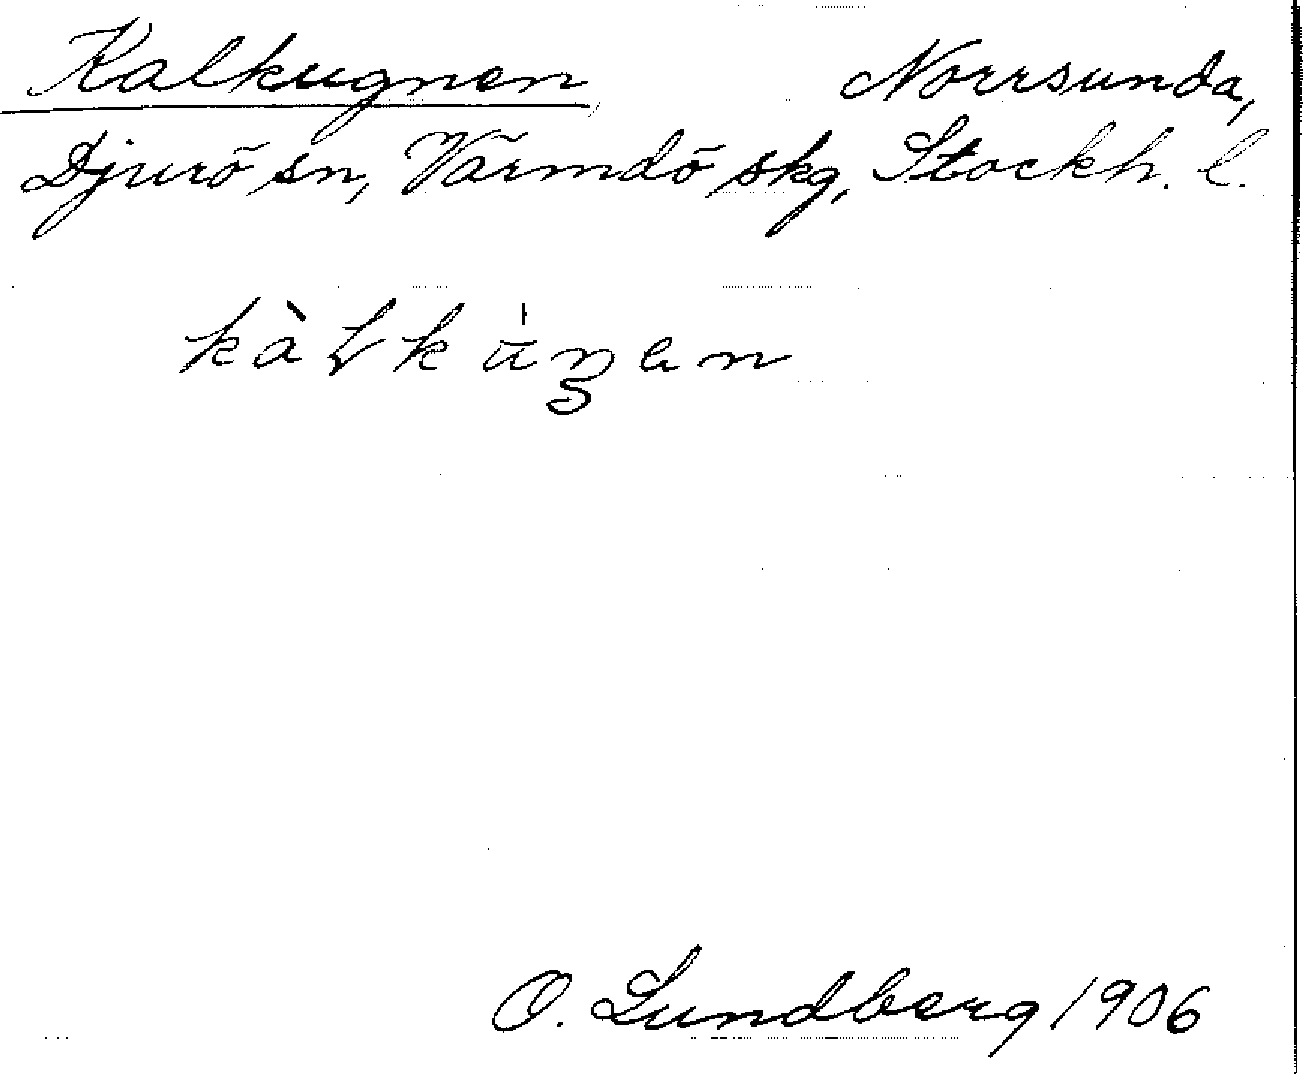 Kalkugnen Norrsunda,
Djurö sn, Värmdö skg, Stockh. l.
O. Lundberg 1906